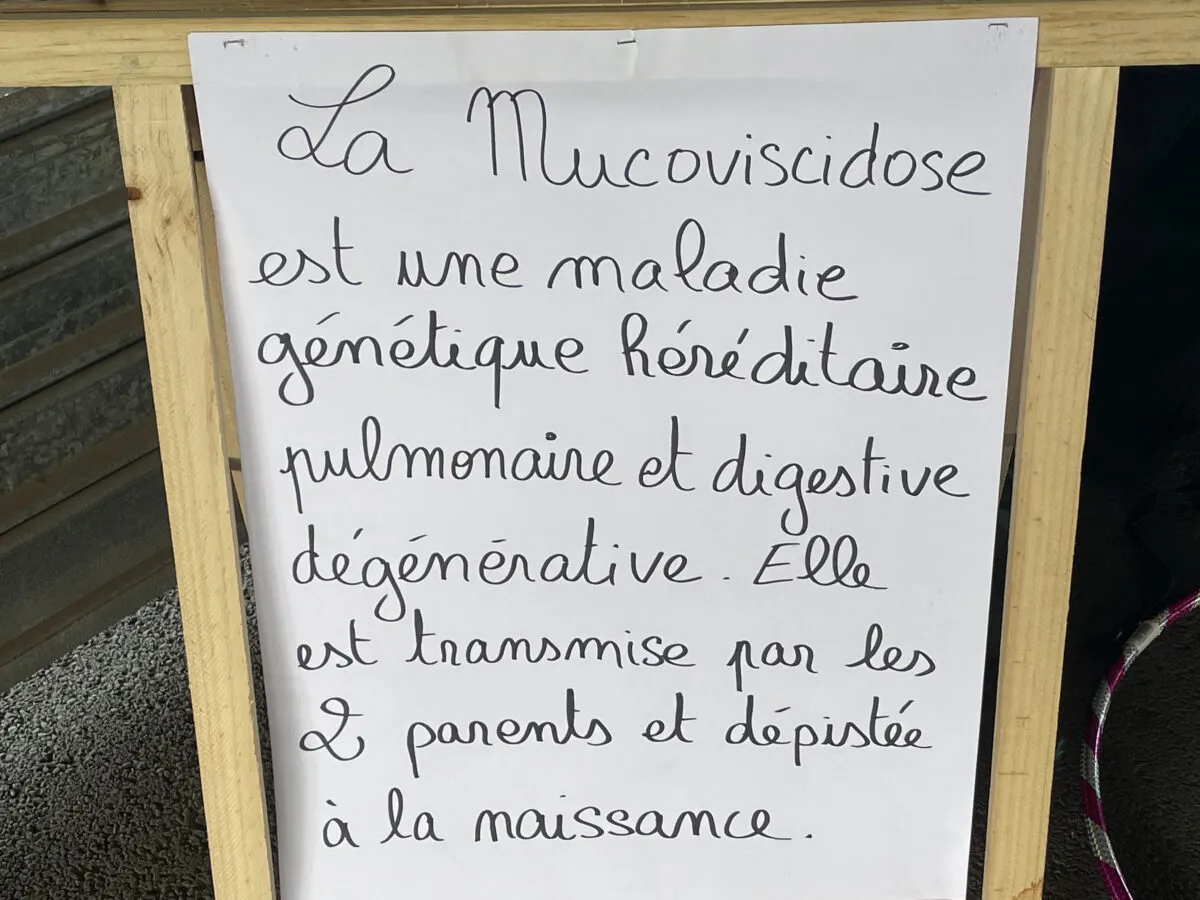 La Mucoviscidose
est une maladie
génétique héréditaire
pulmonaire et digestive
dégénérative. Elle
est transmise par les
2 parents et dépistée
à la naissance.